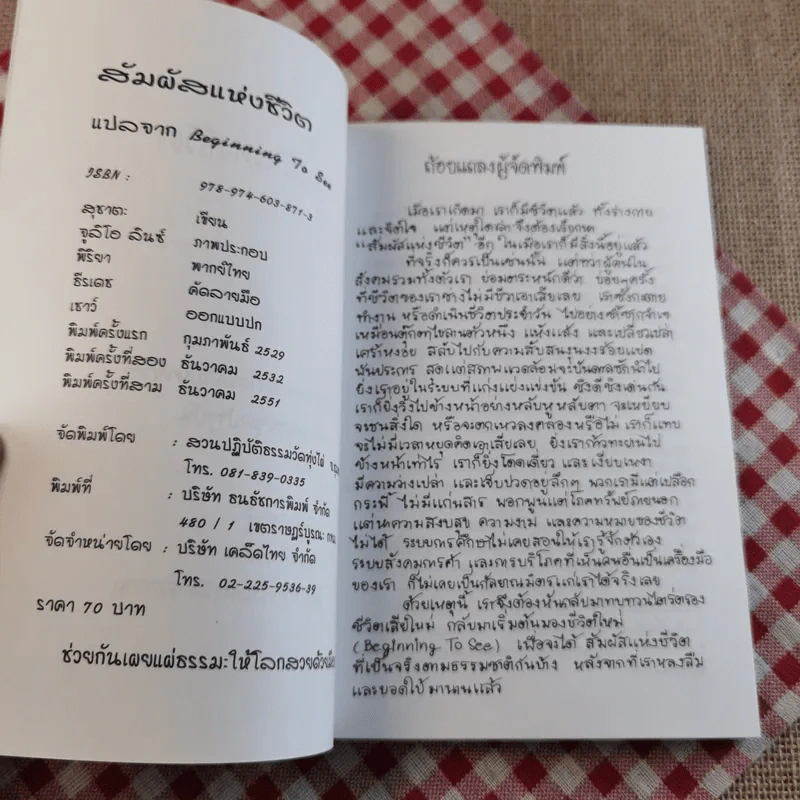 สัมผัสแห่งชีวิต
แปลจาก Beginning To See
ISBN : 978-974-603-871-3
สุชาตะ เขียน
จูลีโอ ลินซ์ ภาพประกอบ
พิริยา พากย์ไทย
ธีรเดช คัดลายมือ
เชาว์ ออกแบบปก
พิมพ์ครั้งแรก กุมภาพันธ์ 2529
พิมพ์ครั้งที่สอง ธันวาคม 2532
พิมพ์ครั้งที่สาม ธันวาคม 2551
จัดพิมพ์โดย : สวนปฏิบัติธรรมวัดทุ่งไผ่
โทร. 081-839-0335
พิมพ์ที่ : บริษัท ธนธัชการพิมพ์ จำกัด
480 / 1 เขตราษฎร์บูรณะ
จัดจำหน่ายโดย : บริษัท เคล็ดไทย จำกัด
โทร. 02-225-9536-39
ราคา 70 บาท
ช่วยกันเผยแผ่ธรรมะให้โลกสวยด้วย
ถ้อยแถลงผู้จัดพิมพ์
เมื่อเราเกิดมา เราก็มีชีวิตแล้ว ทั้งร่างกาย
และจิตใจ แต่เหตุใดเล่า จึงต้องเรียกหา
"สัมผัสแห่งชีวิต" อีก ในเมื่อเราก็มีสิ่งนี้อยู่แล้ว
ที่จริงก็ควรเป็นเช่นนั้น แต่ทว่าผู้คนใน
สังคมรวมทั้งตัวเรา ย่อมตระหนักดีว่า บ่อยๆครั้ง
ที่ชีวิตของเราช่างไม่มีชีวิตเอาเสียเลย เราซังกะตาย
ทำงาน หรือดำเนินชีวิตประจำวัน ไปอย่างซ้ำซากจำเจ
เหมือนตุ๊กตาไขลานตัวหนึ่ง แห้งแล้ง และเปลี่ยวเปล่า
เศร้าหงอย สลับไปกับความสับสนวุ่นวายร้อยแปด
พันประการ สุดแต่สภาพแวดล้อมจะบันดาลชักนำไป
ยิ่งเราอยู่ในระบบที่แก่งแย่งแข่งขัน ชิงดีชิงเด่นกัน
เราก็ยิ่งวิ่งไปข้างหน้าอย่างหลับหูหลับตา จะเหยียบ
จะชนสิ่งใด หรือจะตกเหวลงคลองหรือไม่ เราก็แทบ
จะไม่มีเวลาหยุดคิดเอาเสียเลย ยิ่งเราก้าวทะยานไป
ข้างหน้าเท่าไร เราก็ยิ่งโดดเดี่ยว และเงียบเหงา
มีความว่างเปล่า และเจ็บปวดอยู่ลึกๆ พวกเรามีแต่เปลือก
กระพี้ ไม่มีแก่นสาร พอกพูนแต่โภคทรัพย์ภายนอก
แต่หาความสงบสุข ความงาม และความหมายของชีวิต
ไม่ได้ ระบบการศึกษาไม่เคยสอนให้เรารู้จักตัวเอง
ระบบสังคมการค้า และการบริโภคที่เห็นคนอื่นเป็นเครื่องมือ
ของเรา ก็ไม่เคยเป็นกัลยาณมิตรแก่เราได้จริงเลย
ด้วยเหตุนี้ เราจึงต้องหันกลับมาทบทวนไตร่ตรอง
ชีวิตเสียใหม่ กลับมาเริ่มต้นมองชีวิตใหม่
(Beginning To See) เพื่อจะได้ สัมผัสแห่งชีวิต
ที่เป็นจริงตามธรรมชาติกันบ้าง หลังจากที่เราหลงลืม
และมองไป มานานแล้ว